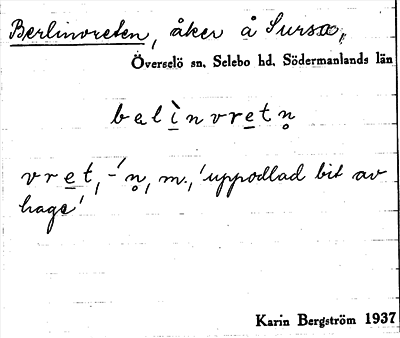 Berlinvreten, åker å Sursa,
Överselö sn. Selebo hd. Södermanlands län
belìnvretn̥
vret, -'n̥, m., 'uppodlad bit av
hage'
Karin Bergström 1937